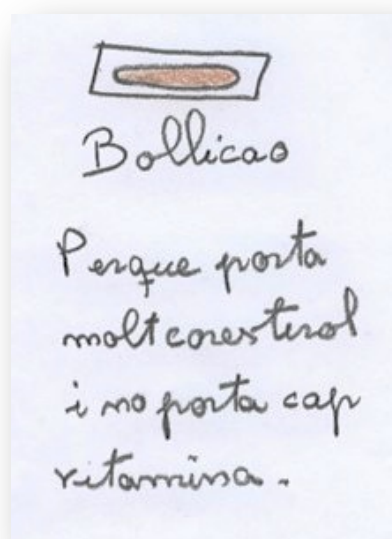 Bollicao
Perque porta
molt coresterol
i no porta cap
vitamina.